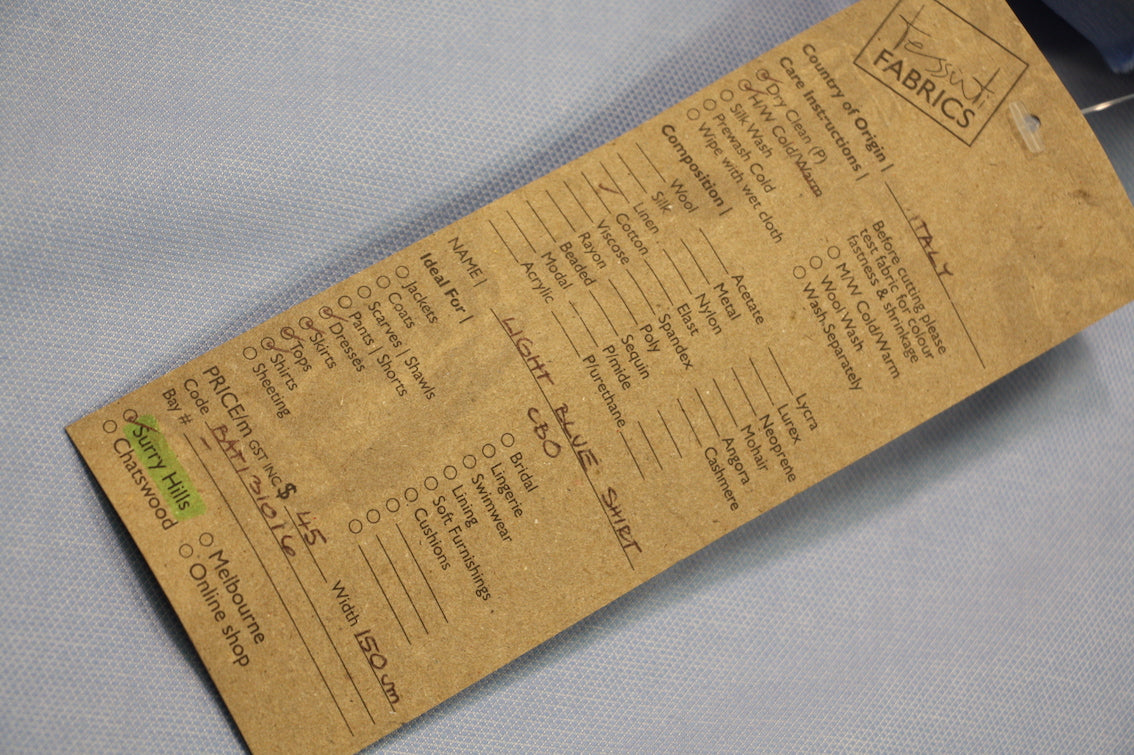 tessuti
FABRICS
Country of Origin | ITALY
Care Instructions |
Dry Clean (P)
H/W Cold/Warm
Silk Wash
Prewash Cold
Wipe with wet cloth
Before cutting please
test fabric for colour
fastness & shrinkage
M/W Cold/Warm
Wool Wash
Wash Separately
Composition |
Wool
Silk
Linen
Cotton
Viscose
Rayon
Beaded
Modal
Acrylic
Acetate
Metal
Nylon
Elast
Spandex
Poly
Sequin
P/mide
P/urethane
Lycra
Lurex
Neoprene
Mohair
Angora
Cashmere
NAME | LIGHT BLUE SHIRT
CBO
Ideal For |
Jackets
Coats
Scarves | Shawls
Pants | Shorts
Dresses
Skirts
Tops
Shirts
Sheeting
Bridal
Lingerie
Swimwear
Lining
Soft Furnishings
Cushions
PRICE/m GST INC $ 45 Width 150cm
Code BAT131016
Bay # -
Surry Hills
Chatswood
Melbourne
Online shop